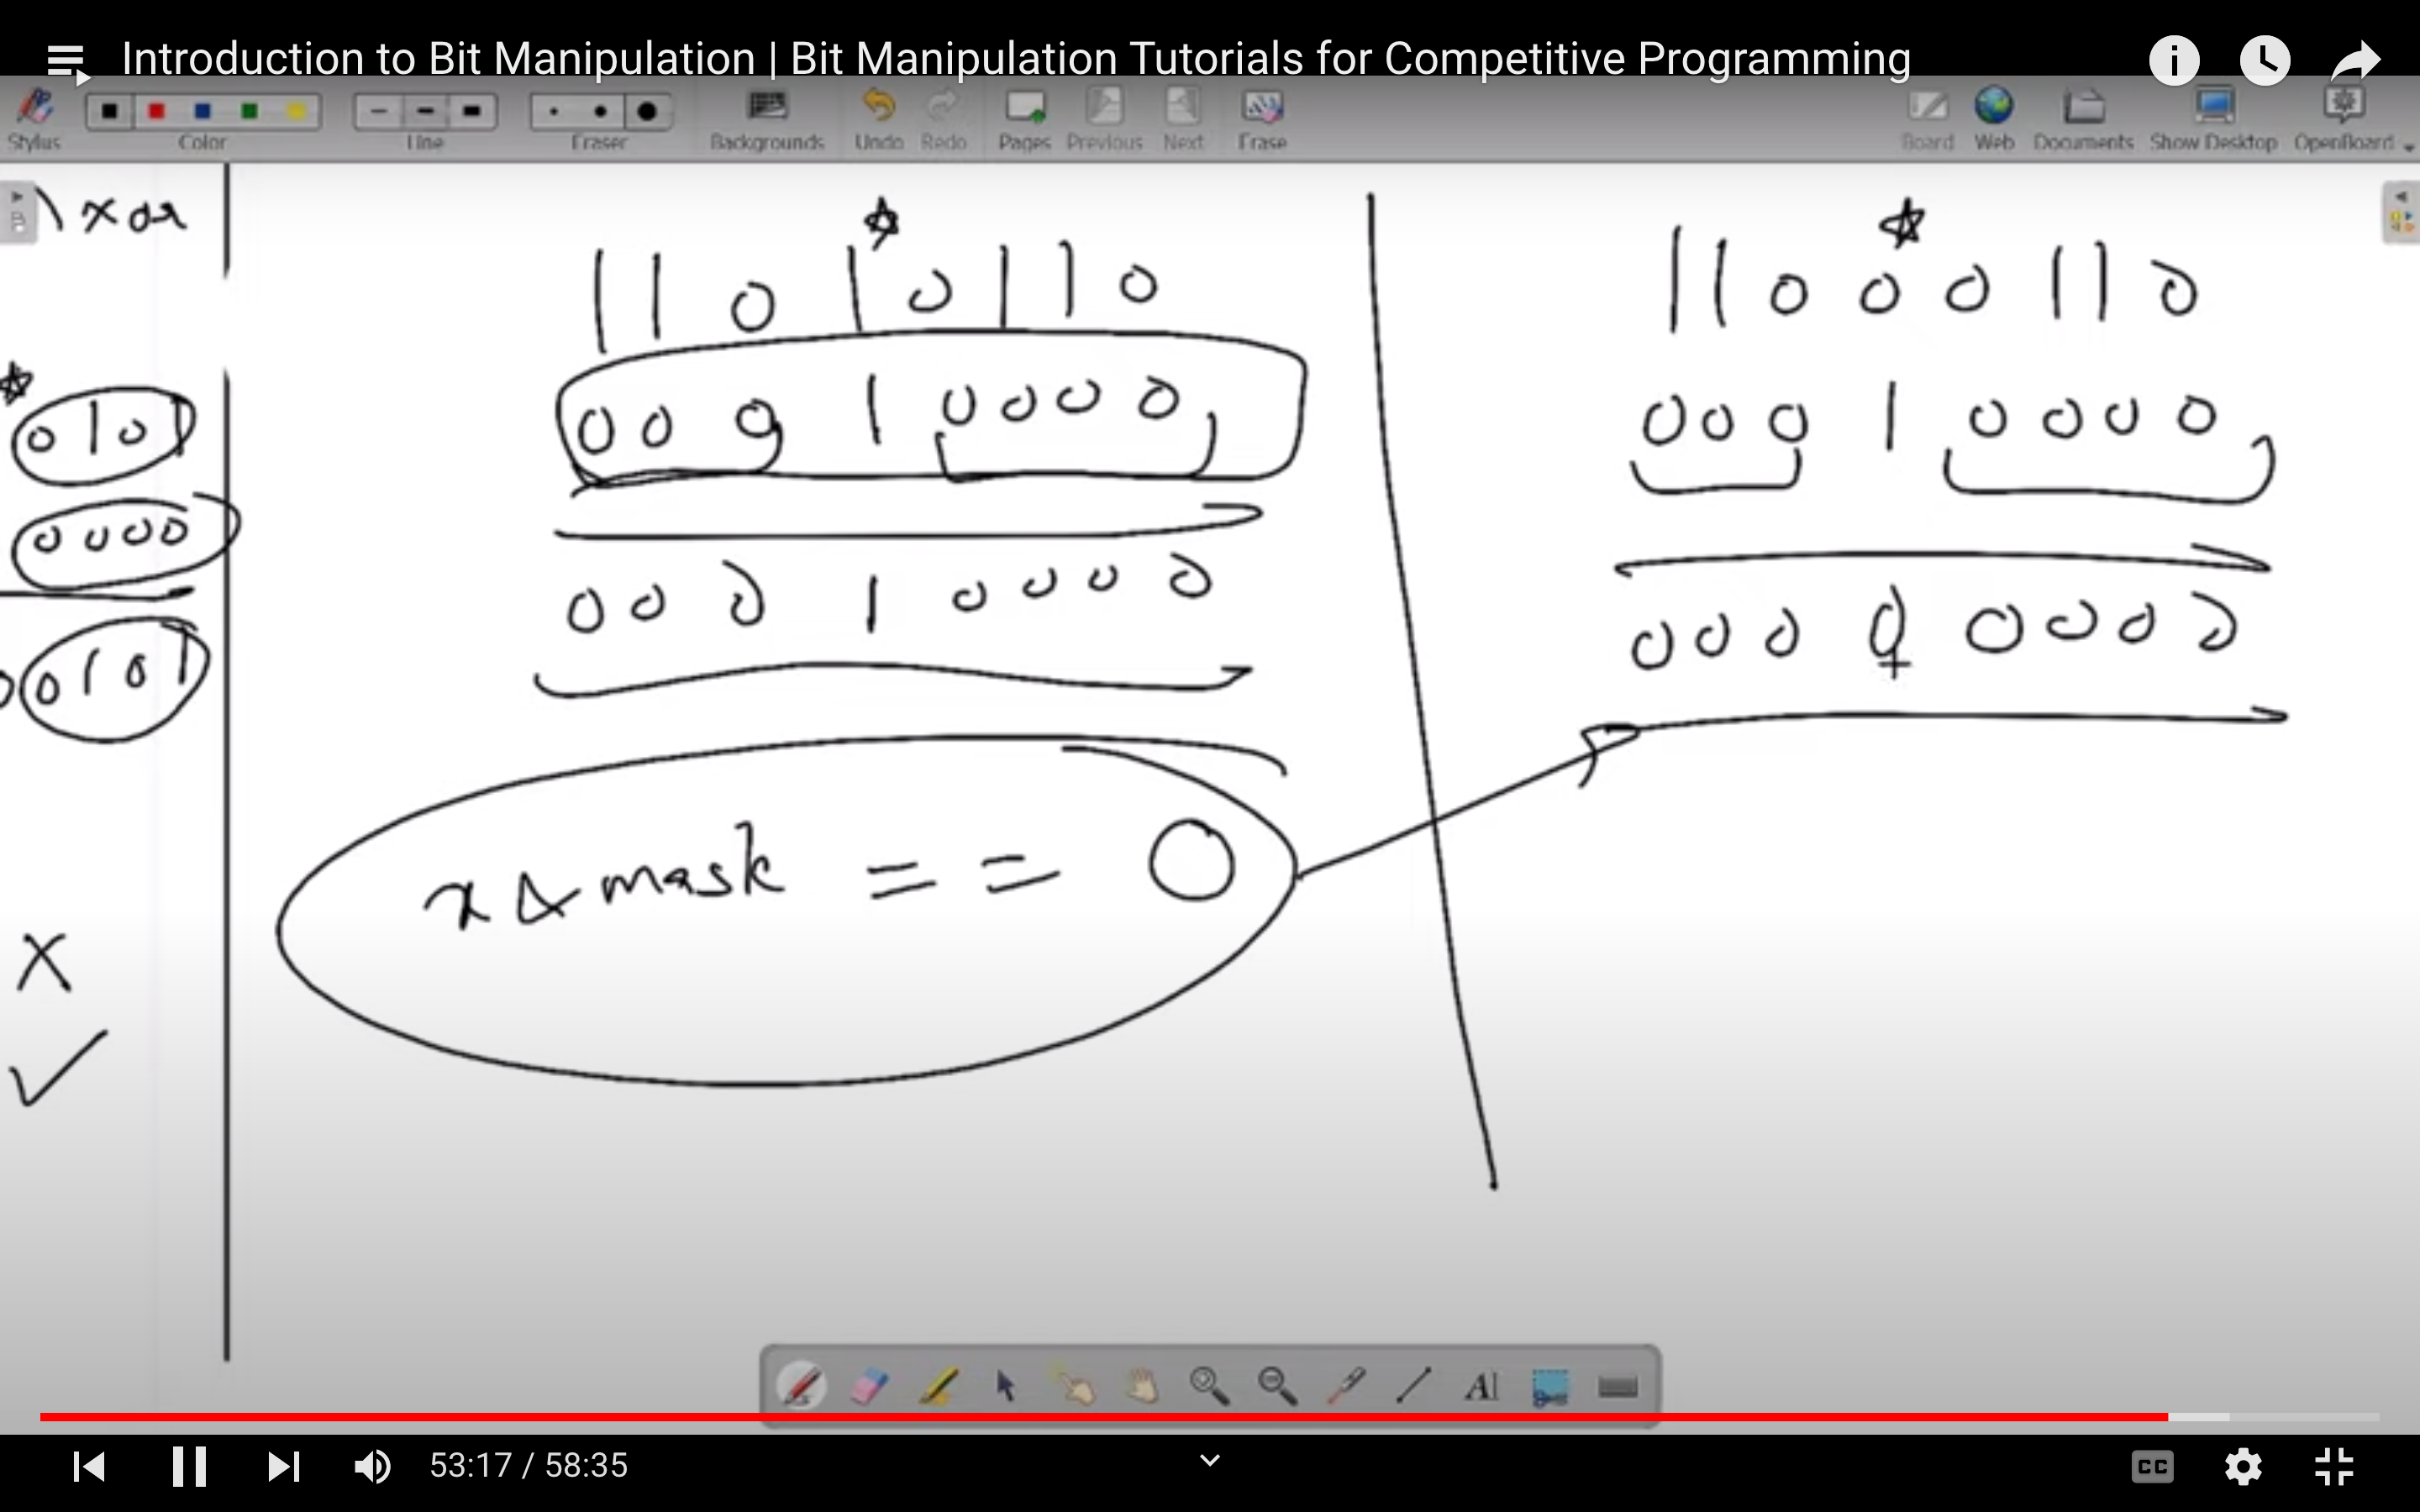 Introduction to Bit Manipulation | Bit Manipulation Tutorials for Competitive Programming
Stylus Color Line Eraser Backgrounds Undo Redo Pages Previous Next Erase Board Web Documents Show Desktop OpenBoard
xor
1 1 0 1 0 1 1 0
0 0 0 1 0 0 0 0
0 0 0 1 0 0 0 0
x & mask == 0
1 1 0 0 0 1 1 0
0 0 0 1 0 0 0 0
0 0 0 0 0 0 0 0
0101
0000
0101
53:17 / 58:35
CC